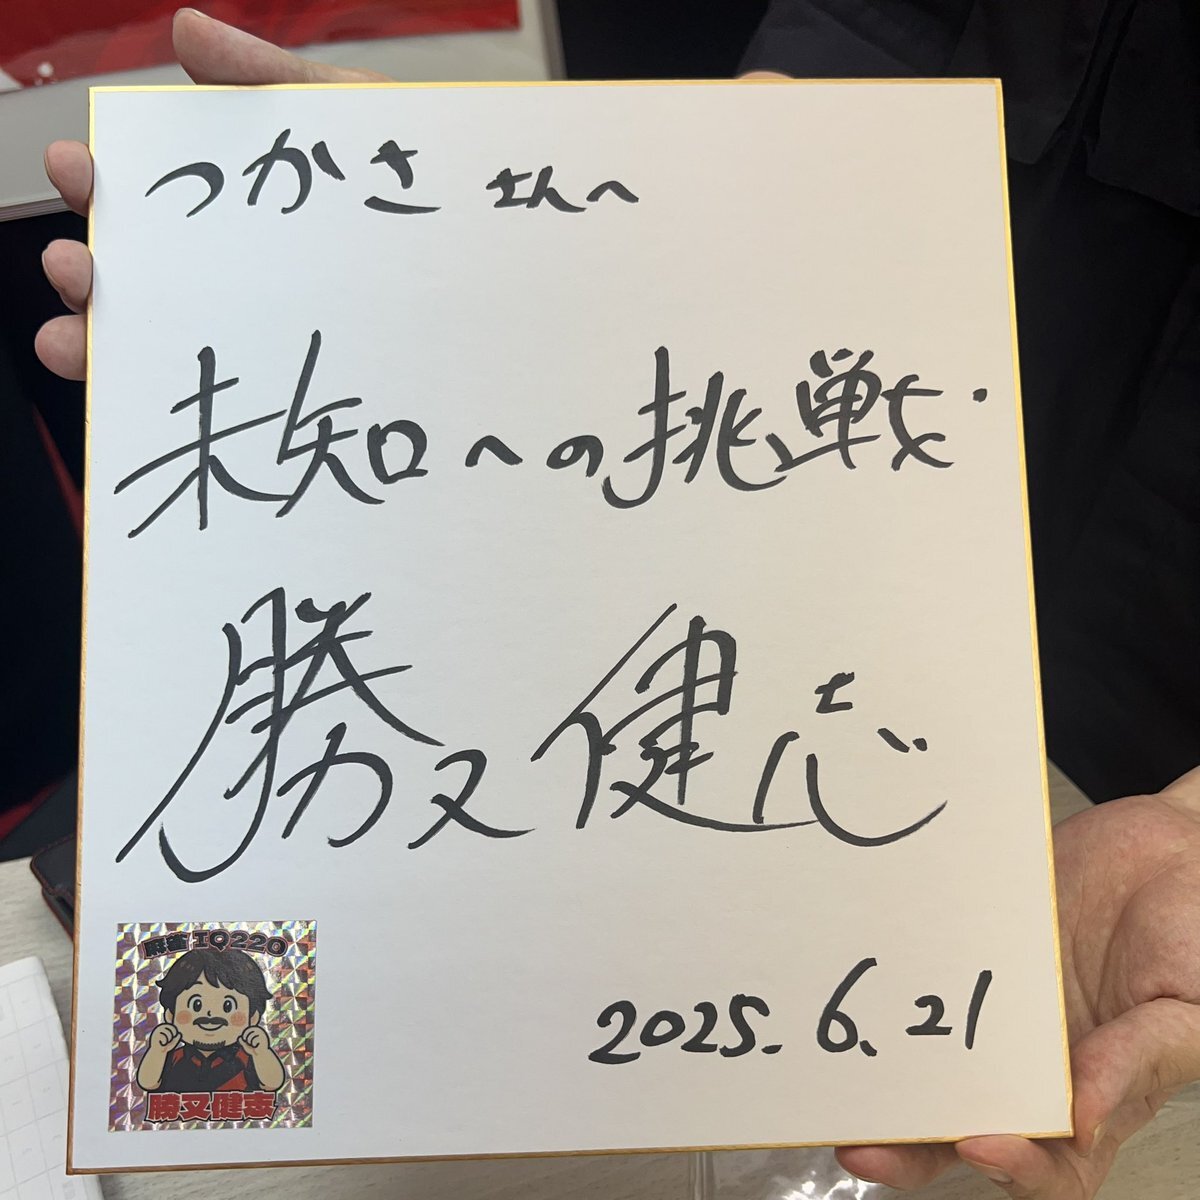 つかさ さんへ
未知への挑戦
勝又健志
麻雀 IQ220
勝又健志
2025.6.21